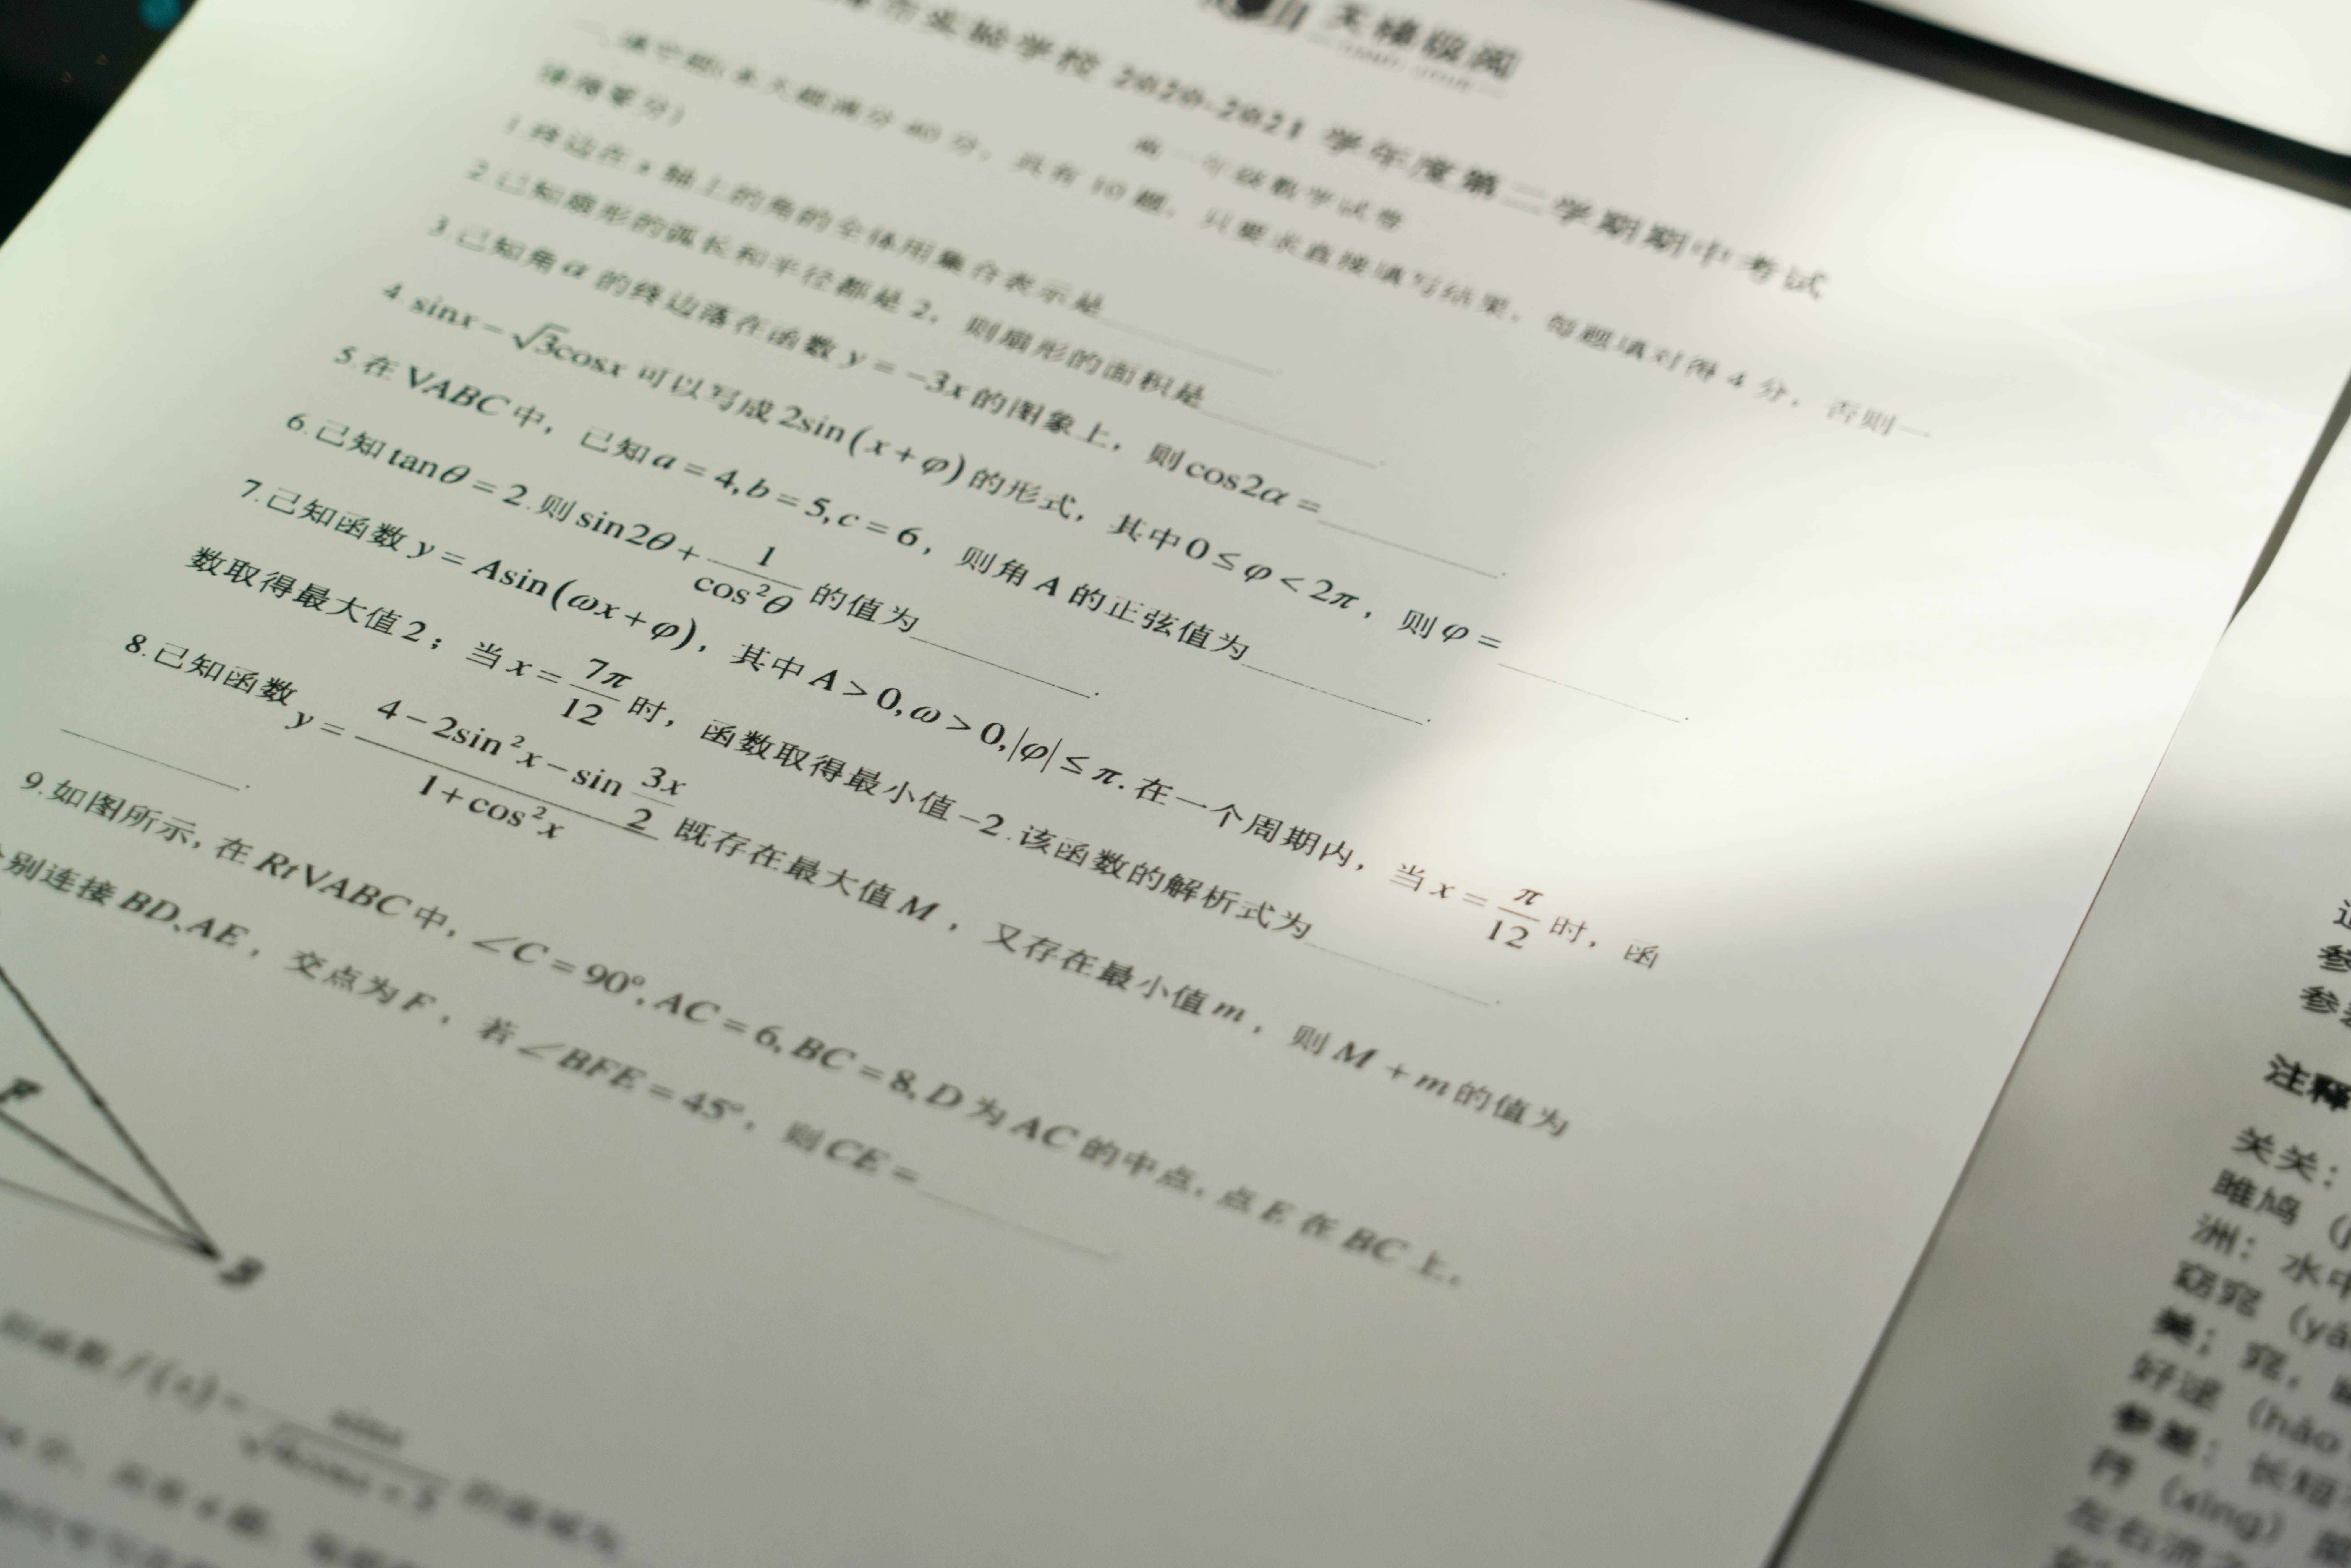 天壕版阅
市实验学校 2020-2021 学年度第二学期期中考试
高一年级数学试卷
一、填空题(本大题满分 40 分,共有 10 题,只要求直接填写结果,每题填对得 4 分,否则一
律得零分)
1.终边在 x 轴上的角的全体用集合表示是________.
2.已知扇形的弧长和半径都是 2,则扇形的面积是________.
3.已知角α的终边落在函数 y=-3x 的图象上,则cos2α=________.
4.sinx-√3cosx 可以写成 2sin(x+φ) 的形式,其中0≤φ<2π,则φ=________.
5.在 VABC 中,已知 a=4,b=5,c=6,则角 A 的正弦值为________.
6.已知 tanθ=2.则 sin2θ+1/cos²θ 的值为________.
7.已知函数 y=Asin(ωx+φ),其中 A>0,ω>0,|φ|≤π.在一个周期内,当 x=π/12 时,函
数取得最大值2;当 x=7π/12 时,函数取得最小值-2.该函数的解析式为________.
8.已知函数 y=(4-2sin²x-sin 3x/2)/(1+cos²x) 既存在最大值 M,又存在最小值 m,则 M+m 的值为
________.
9.如图所示,在 RtVABC 中,∠C=90°,AC=6,BC=8,D 为 AC 的中点,点 E 在 BC 上,
别连接 BD、AE,交点为 F,若∠BFE=45°,则 CE=________
F
B
函数 f(x)=
注释
关关:
雎鸠(
洲:水中
窈窕(yǎ
美;窕,
好逑(hǎo
参差:长短
荇(xìng)
左右流